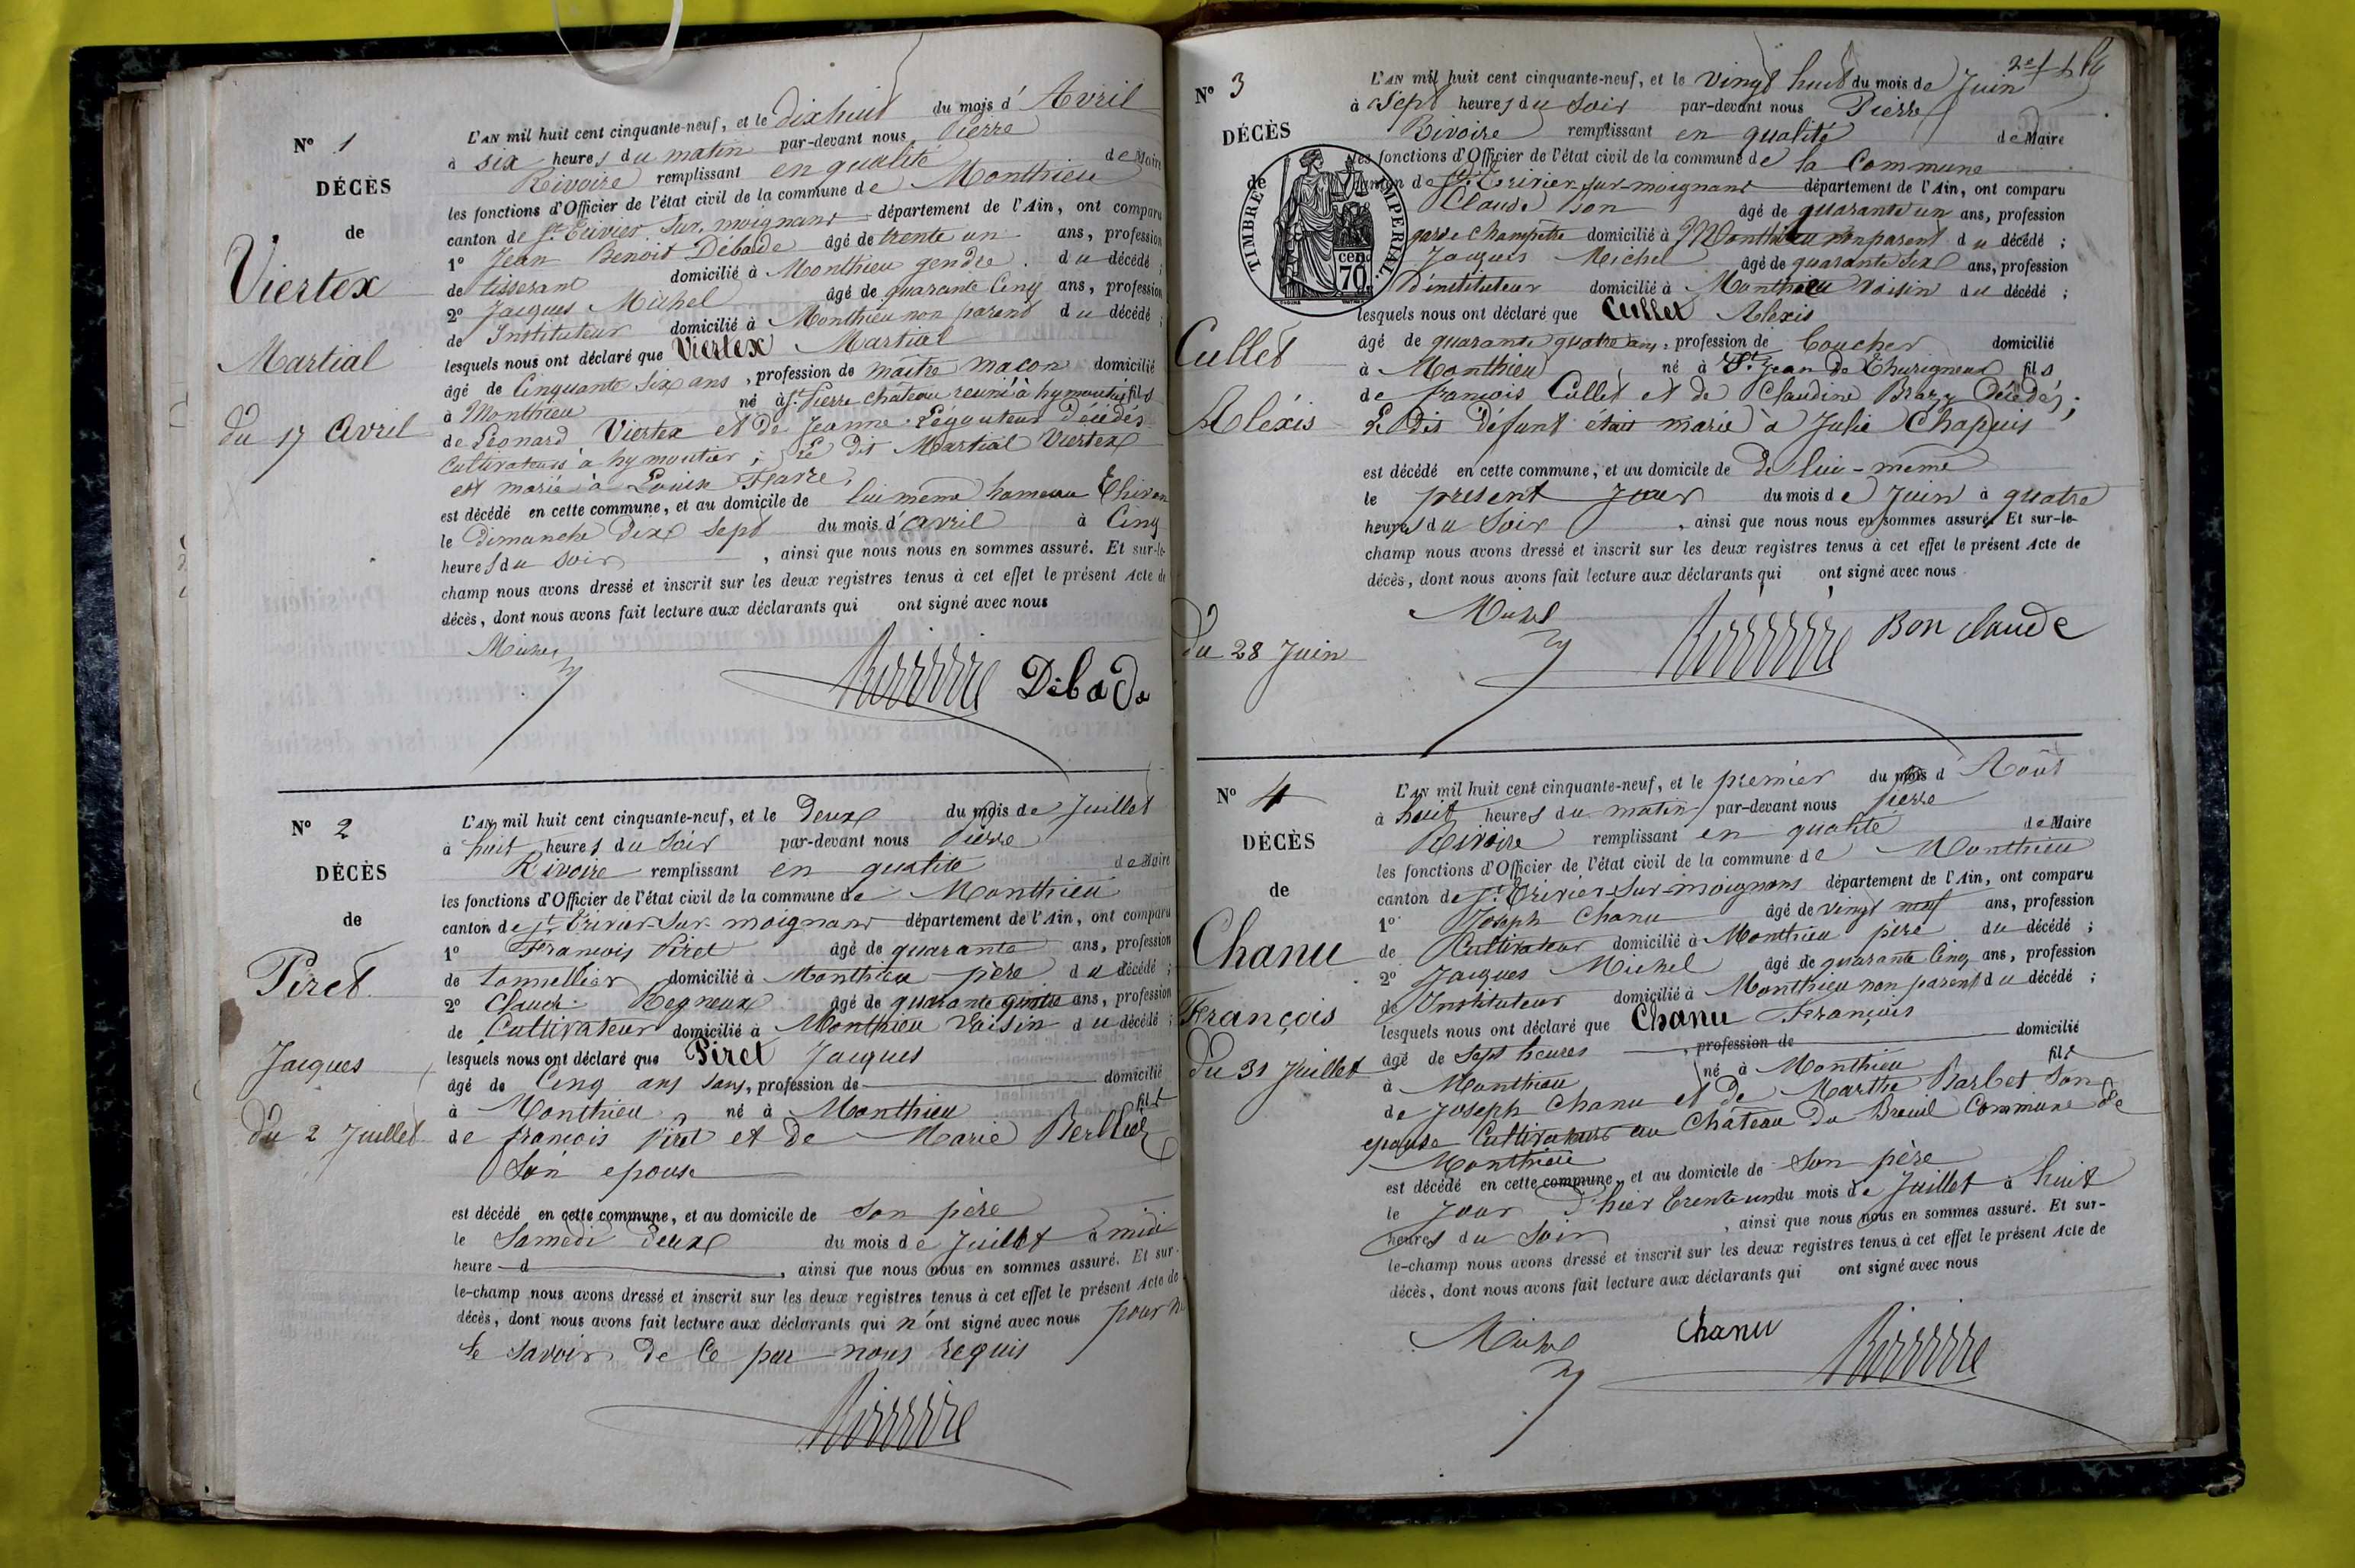 N° 1
DÉCÈS
de
Viertex
Martial
du 17 Avril
L'AN mil huit cent cinquante-neuf, et le dix huit du mois d' Avril
à six heures du matin par-devant nous Pierre
Rivoire remplissant en qualité de Maire
les fonctions d'Officier de l'état civil de la commune de Monthieu
canton de St Trivier Sur moignans département de l'Ain, ont comparu
1° Jean Benoit Débade âgé de trente un ans, profession
de tisserant domicilié à Monthieu gendre du décédé ;
2° Jacques Michel âgé de quarante Cinq ans, profession
de Instituteur domicilié à Monthieu non parent du décédé ;
lesquels nous ont déclaré que Viertex Martial
âgé de Cinquante Six ans, profession de maitre maçon domicilié
à Monthieu né à St Pierre château reuni à hymoutier fils
de Léonard Viertex et de Jeanne Légouteux Décédés
Cultivateurs à hymoutier ; Le dit Martial Viertex
est marié à Louise Farre,
est décédé en cette commune, et au domicile de lui même hameau
le Dimanche Dix Sept du mois d'avril à Cinq
heures du soir, ainsi que nous nous en sommes assuré. Et sur-le-
champ nous avons dressé et inscrit sur les deux registres tenus à cet effet le présent Acte de
décès, dont nous avons fait lecture aux déclarants qui ont signé avec nous
Michel
Rivoire Débade
N° 2
DÉCÈS
de
Piret
Jacques
Du 2 Juillet
L'AN mil huit cent cinquante-neuf, et le Deux du mois de Juillet
à huit heures du Soir par-devant nous Pierre
Rivoire remplissant en qualité de Maire
les fonctions d'Officier de l'état civil de la commune de Monthieu
canton de St Trivier-Sur-moignans département de l'Ain, ont comparu
1° François Piret âgé de quarante ans, profession
de tonnellier domicilié à Monthieu père du décédé ;
2° Claude Regneux âgé de quarante quatre ans, profession
de Cultivateur domicilié à Monthieu Voisin du décédé ;
lesquels nous ont déclaré que Piret Jacques
âgé de Cinq ans sans, profession de domicilié
à Monthieu, né à Monthieu fils
de françois Piret et de Marie Berlliet
Son epouse
est décédé en cette commune, et au domicile de son père
le Samedi Deux du mois de Juillet à midi
heure d , ainsi que nous nous en sommes assuré. Et sur-
le-champ nous avons dressé et inscrit sur les deux registres tenus à cet effet le présent Acte de
décès, dont nous avons fait lecture aux déclarants qui n'ont signé avec nous pour ne
le savoir de ce par nous requis
Rivoire
N° 3
DÉCÈS
de
TIMBRE IMPERIAL
70 cent
Cullet
Aléxis
du 28 Juin
L'AN mil huit cent cinquante-neuf, et le vingt huit du mois de Juin
à Sept heures du Soir par-devant nous Pierre
Rivoire remplissant en qualité de Maire
les fonctions d'Officier de l'état civil de la commune de la Commune
canton de St Trivier-sur-moignans département de l'Ain, ont comparu
Claude Bon âgé de quarante un ans, profession
garde Champêtre domicilié à Monthieu non parent du décédé ;
Jacques Michel âgé de quarante Six ans, profession
D'instituteur domicilié à Monthieu Voisin du décédé ;
lesquels nous ont déclaré que Cullet Aléxis
âgé de quarante quatre ans, profession de Boucher domicilié
à Monthieu né à St Jean de Thurigneux fils
de françois Cullet et de Claudine Brazy Décédés ;
Le dit Défunt était marié à Julie Chapuis
est décédé en cette commune, et au domicile de De lui-même
le présent Jour du mois de Juin à quatre
heures du Soir, ainsi que nous nous en sommes assuré. Et sur-le-
champ nous avons dressé et inscrit sur les deux registres tenus à cet effet le présent Acte de
décès, dont nous avons fait lecture aux déclarants qui ont signé avec nous
Michel
Rivoire Bon claude
N° 4
DÉCÈS
de
Chanu
François
Du 31 Juillet
L'AN mil huit cent cinquante-neuf, et le premier du mois d Août
à huit heures du matin par-devant nous Pierre
Rivoire remplissant en qualité de Maire
les fonctions d'Officier de l'état civil de la commune de Monthieu
canton de St Trivier-Sur-moignans département de l'Ain, ont comparu
1° Joseph Chanu âgé de vingt neuf ans, profession
de Cultivateur domicilié à Monthieu père du décédé ;
2° Jacques Michel âgé de quarante Cinq ans, profession
de Instituteur domicilié à Monthieu non parent du décédé ;
lesquels nous ont déclaré que Chanu François
âgé de Sept heures, profession de domicilié
à Monthieu né à Monthieu fils
de Joseph Chanu et de Marthe Barbet Son
epouse Cultivateurs au Château du Breuil Commune de
Monthieu
est décédé en cette commune, et au domicile de Son père
le Jour D'hier Trente un du mois de Juillet à huit
heures du Soir, ainsi que nous nous en sommes assuré. Et sur-
le-champ nous avons dressé et inscrit sur les deux registres tenus à cet effet le présent Acte de
décès, dont nous avons fait lecture aux déclarants qui ont signé avec nous
Michel Chanu Rivoire